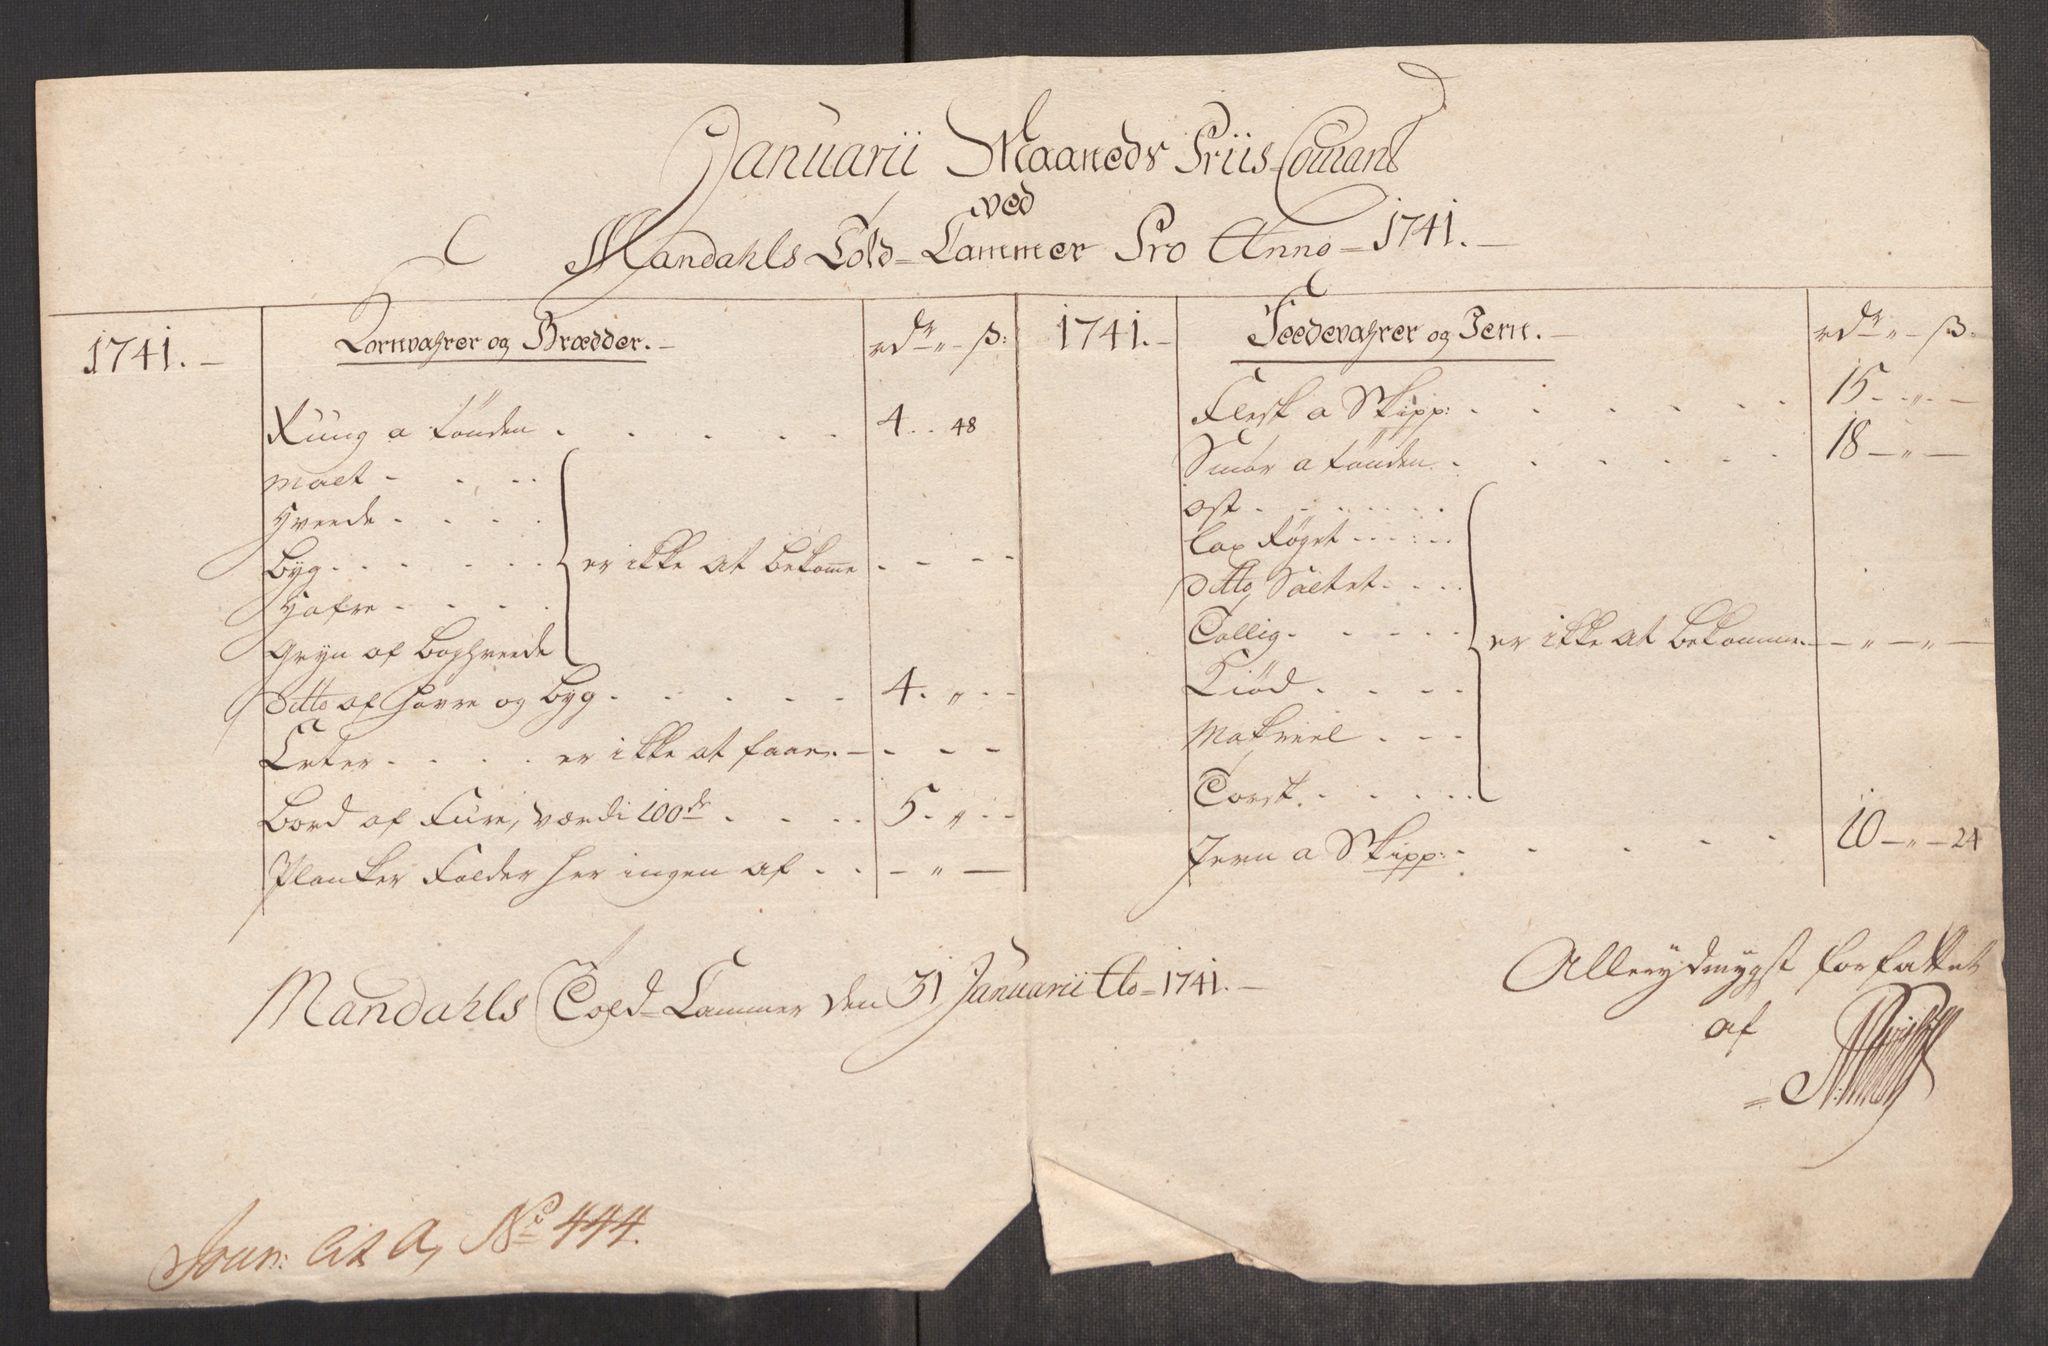 Januarii Maaneds Priis-Courant
ved
Mandahls Told-Cammer Pro Anno-1741.-
1741.- Kornvahrer og Brædder.- rdr „ ß:
Rung a tönden . . . . . 4 . . 48
Malt - . . . .
Hveede . . . .
Byg . . . . . . er ikke at bekome . - - -
Hafre . . . .
Gryn af Boghveede
Ditto af Havre og Byg . . . . . 4. „ . -
Erter . . . . er ikke at faae. - - - -
Bord af Fure, værdi 100dr . . . . 5. „ . -
Planker Falder her ingen af . . - „ -
1741.- Feedevahrer og Jern.- rdr „ ß:
Flesk a Skipp: . . . . . . 15. „ . -
Smör a tönden . . . . . . 18 - „ -
Ost . . . . . . .
Lax Röget . . . . . .
Ditto Saltet . . . .
Tallig . . . . . er ikke at bekomme. - „ - „ -
Kiöd . . . .
Makreel . . .
Torsk . . . . . .
Jern a Skipp: . . . . . . 10 - „ - 24
Mandahls Told-Cammer den 31 Januarii Ao-1741.-
Allerydmygst forfattet
af
Jour: Lit A, No 444.